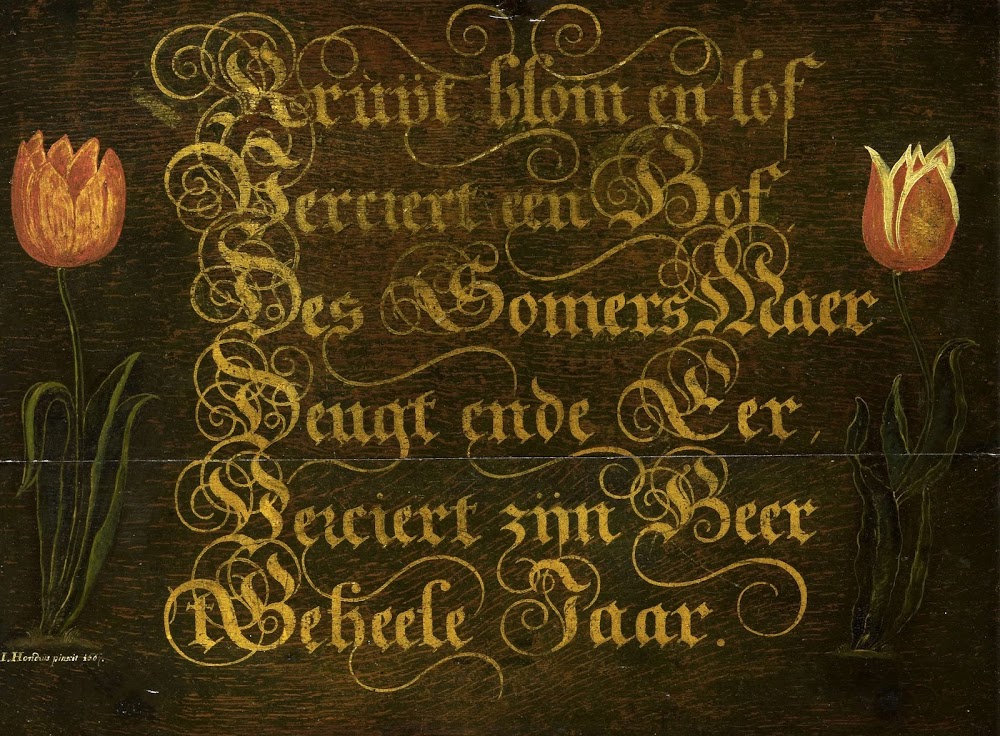 Krüÿt blom en lof
Verciert een Hof,
Des Somers Maer
Deugt ende Eer,
Verciert zijn Heer
'tGeheele Jaar.
I. Hondius pinxit